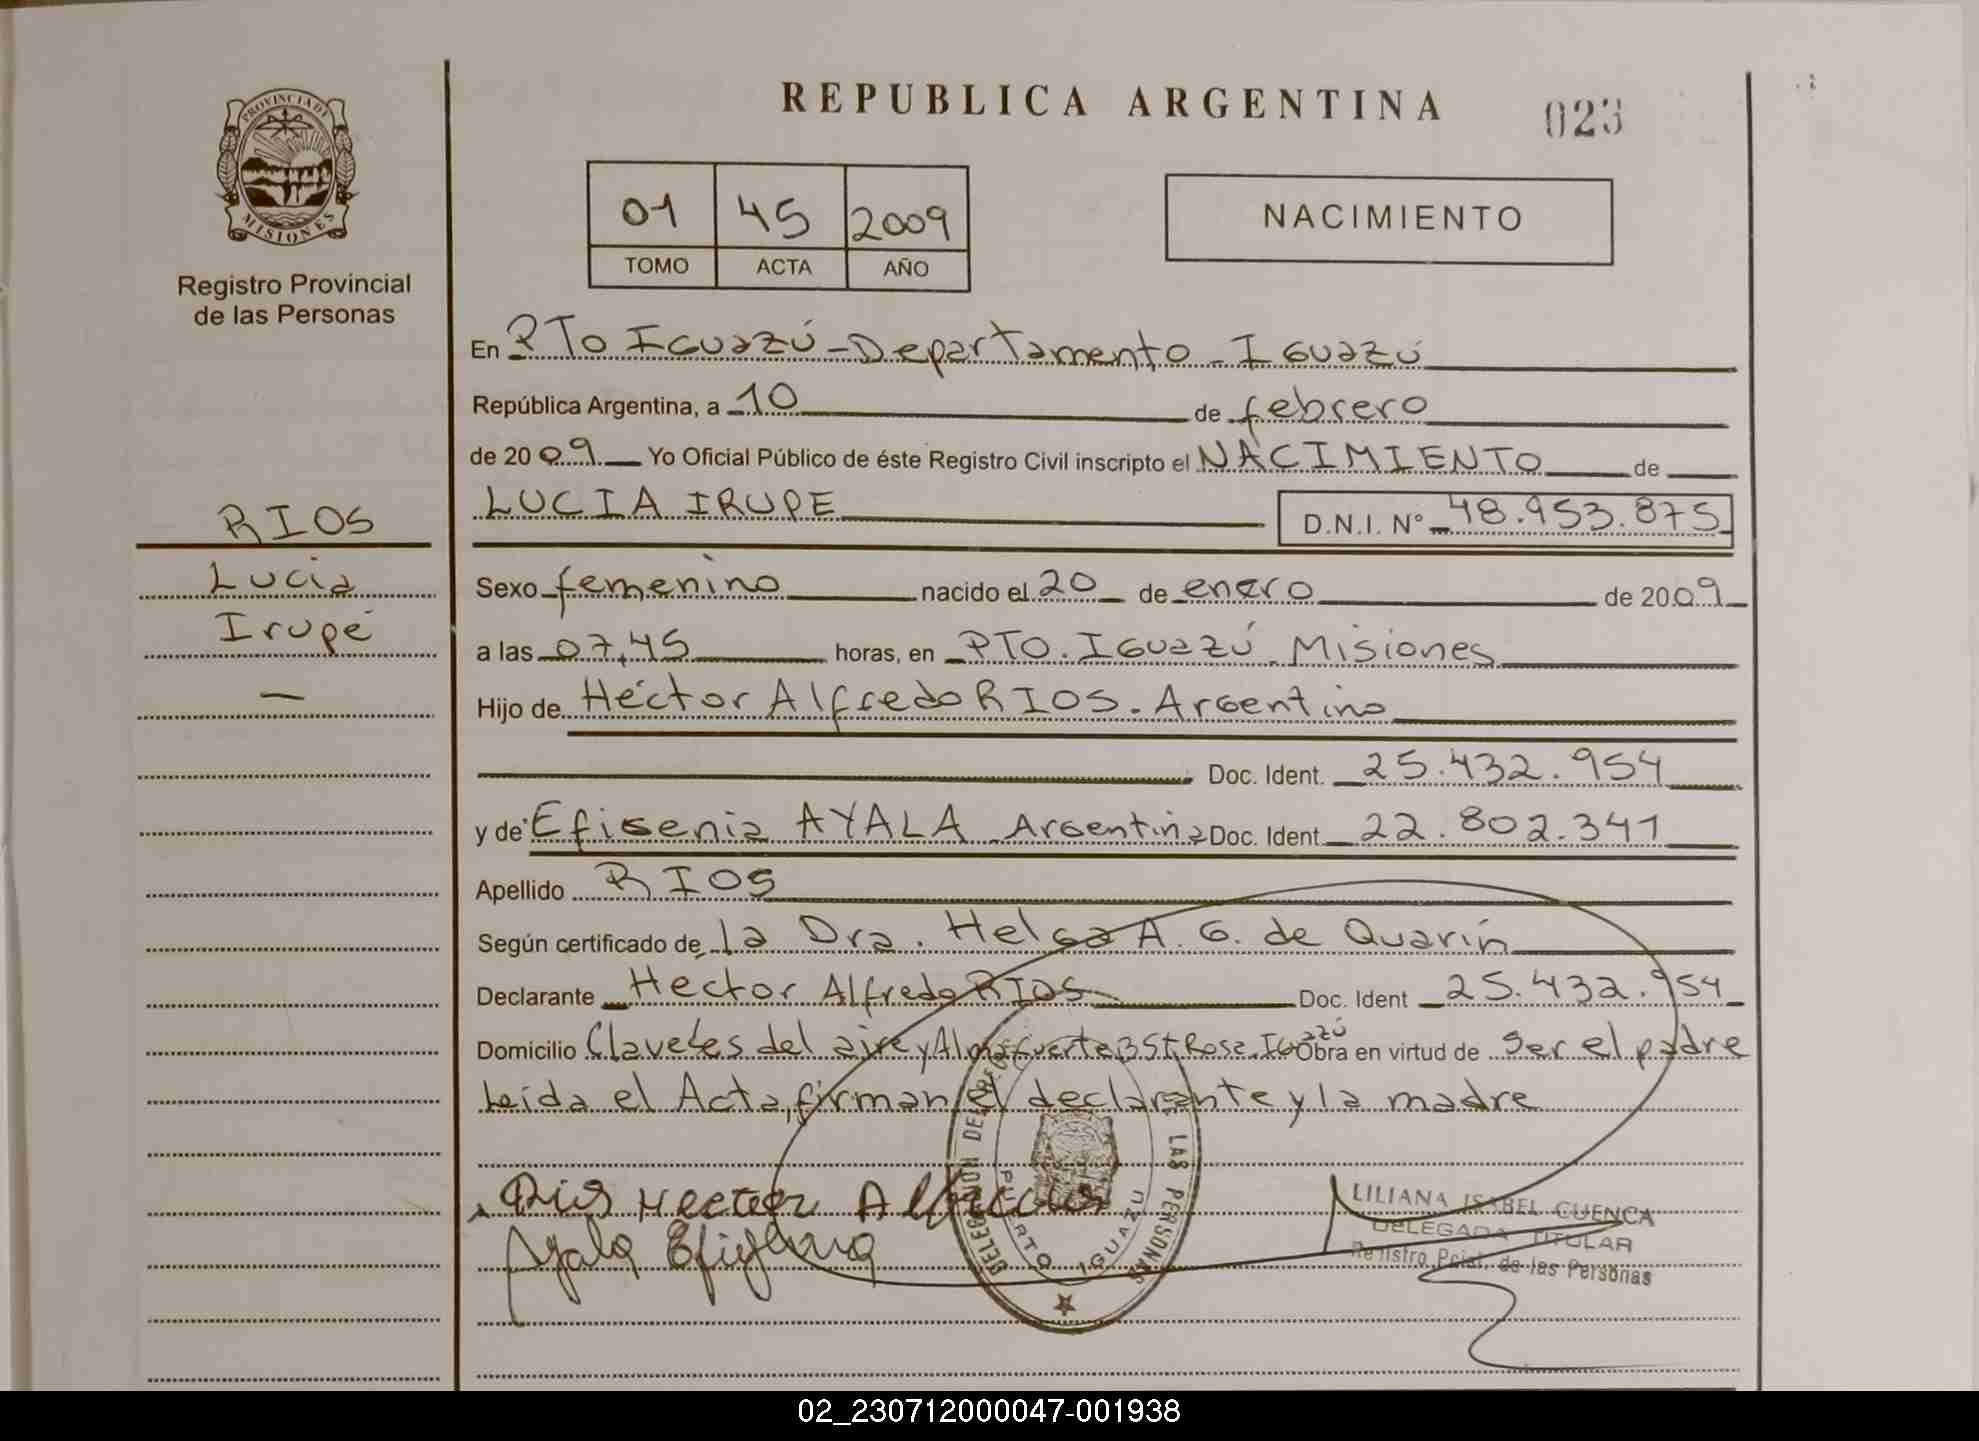 REPUBLICA ARGENTINA
023
PROVINCIA DE
MISIONES
Registro Provincial
de las Personas
01 45 2009
TOMO ACTA AÑO
NACIMIENTO
En PTO IGUAZÚ - Departamento - IGUAZÚ
República Argentina, a 10 de febrero
de 2009 Yo Oficial Público de éste Registro Civil inscripto el NACIMIENTO de
LUCIA IRUPE D.N.I. Nº 48.953.875
RIOS
Lucia
Irupé
Sexo femenino nacido el 20 de enero de 2009
a las 07,45 horas, en PTO. IGUAZÚ - Misiones
Hijo de Héctor Alfredo RIOS - Argentino
Doc. Ident. 25.432.954
y de Efigenia AYALA - Argentina Doc. Ident. 22.802.341
Apellido RIOS
Según certificado de la Dra. Helga A. G. de Quarín
Declarante Hector Alfredo RIOS Doc. Ident 25.432.954
Domicilio Claveles del aire y Almafuerte B St Rosa. IGuazú Obra en virtud de Ser el padre
Leída el Acta, firman el declarante y la madre
Rios Hector Alfredo
Ayala Efigenia
DELEGACION DEL REG. LAS PERSONAS
PUERTO IGUAZU
LILIANA ISABEL CUENCA
DELEGADA TITULAR
Registro Pcial. de las Personas
02_230712000047-001938